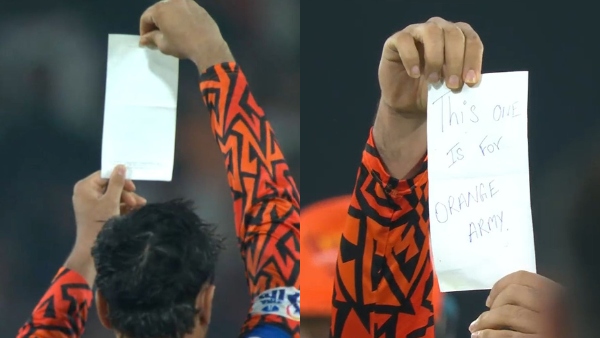 This one
Is For
ORANGE
ARMY.